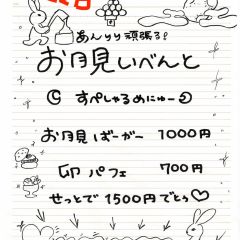 あんりり頑張る!
お月見いべんと
すぺしゃるめにゅー
お月見ばーがー 1000円
卯パフェ 700円
せっとで1500円でとっ♡